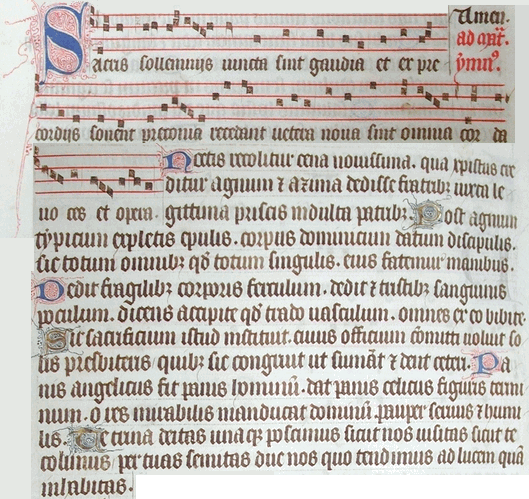 Amen.
ad mat̄.
ẏmn᷒.
Sacris sollennijs iuncta sint gaudia et ex pre
cordijs sonent preconia recedant uetera noua sint omnia cor da
uo ces et opera.
Noctis recolitur cena nouissima. qua xpistus cre
ditur agnum ⁊ azima dedisse fratribꝫ iuxta le
gittima priscis indulta patribꝫ. Post agnum
typicum expletis epulis. corpus dominicum datum discipulis.
sic totum omnibꝫ qd̄ totum singulis. eius fatemur manibus.
Dedit fragilibꝫ corporis ferculum. dedit ⁊ tristibꝫ sanguinis
poculum. dicens accipite qd̄ trado uasculum. omnes ex eo bibite.
Sic sacrificium istud instituit. cuius officium cōmitti uoluit so
lis presbiteris quibꝫ sic congruit ut sumāt ⁊ dent ceteris. Pa
nis angelicus fit panis hominū. dat panis celicus figuris termi
num. o res mirabilis manducat dominū. pauper seruus ⁊ humi
lis. Te trina deitas unaqꝫ poscimus sicut nos uisitas sicut te
colimus per tuas semitas duc nos quo tendimus ad lucem quā
inhabitas.